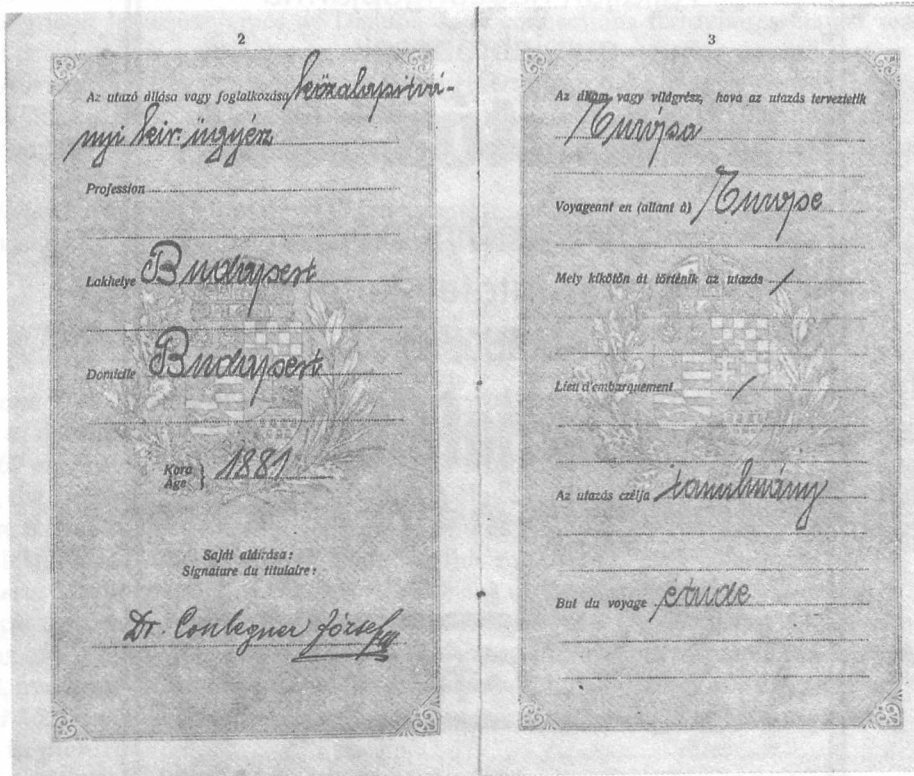 2
Az utazó állása vagy foglalkozása közalapitvá-
nyi kir. ügyész
Profession
Lakhelye Budapest
Domicile Budapest
Kora
Âge } 1881
Saját aláírása:
Signature du titulaire:
Dr. Conlegner József
3
Az állam vagy világrész, hova az utazás terveztetik
Európa
Voyageant en (allant à) Europe
Mely kikötőn át történik az utazás /
Lieu d'embarquement /
Az utazás czélja tanulmány
But du voyage étude